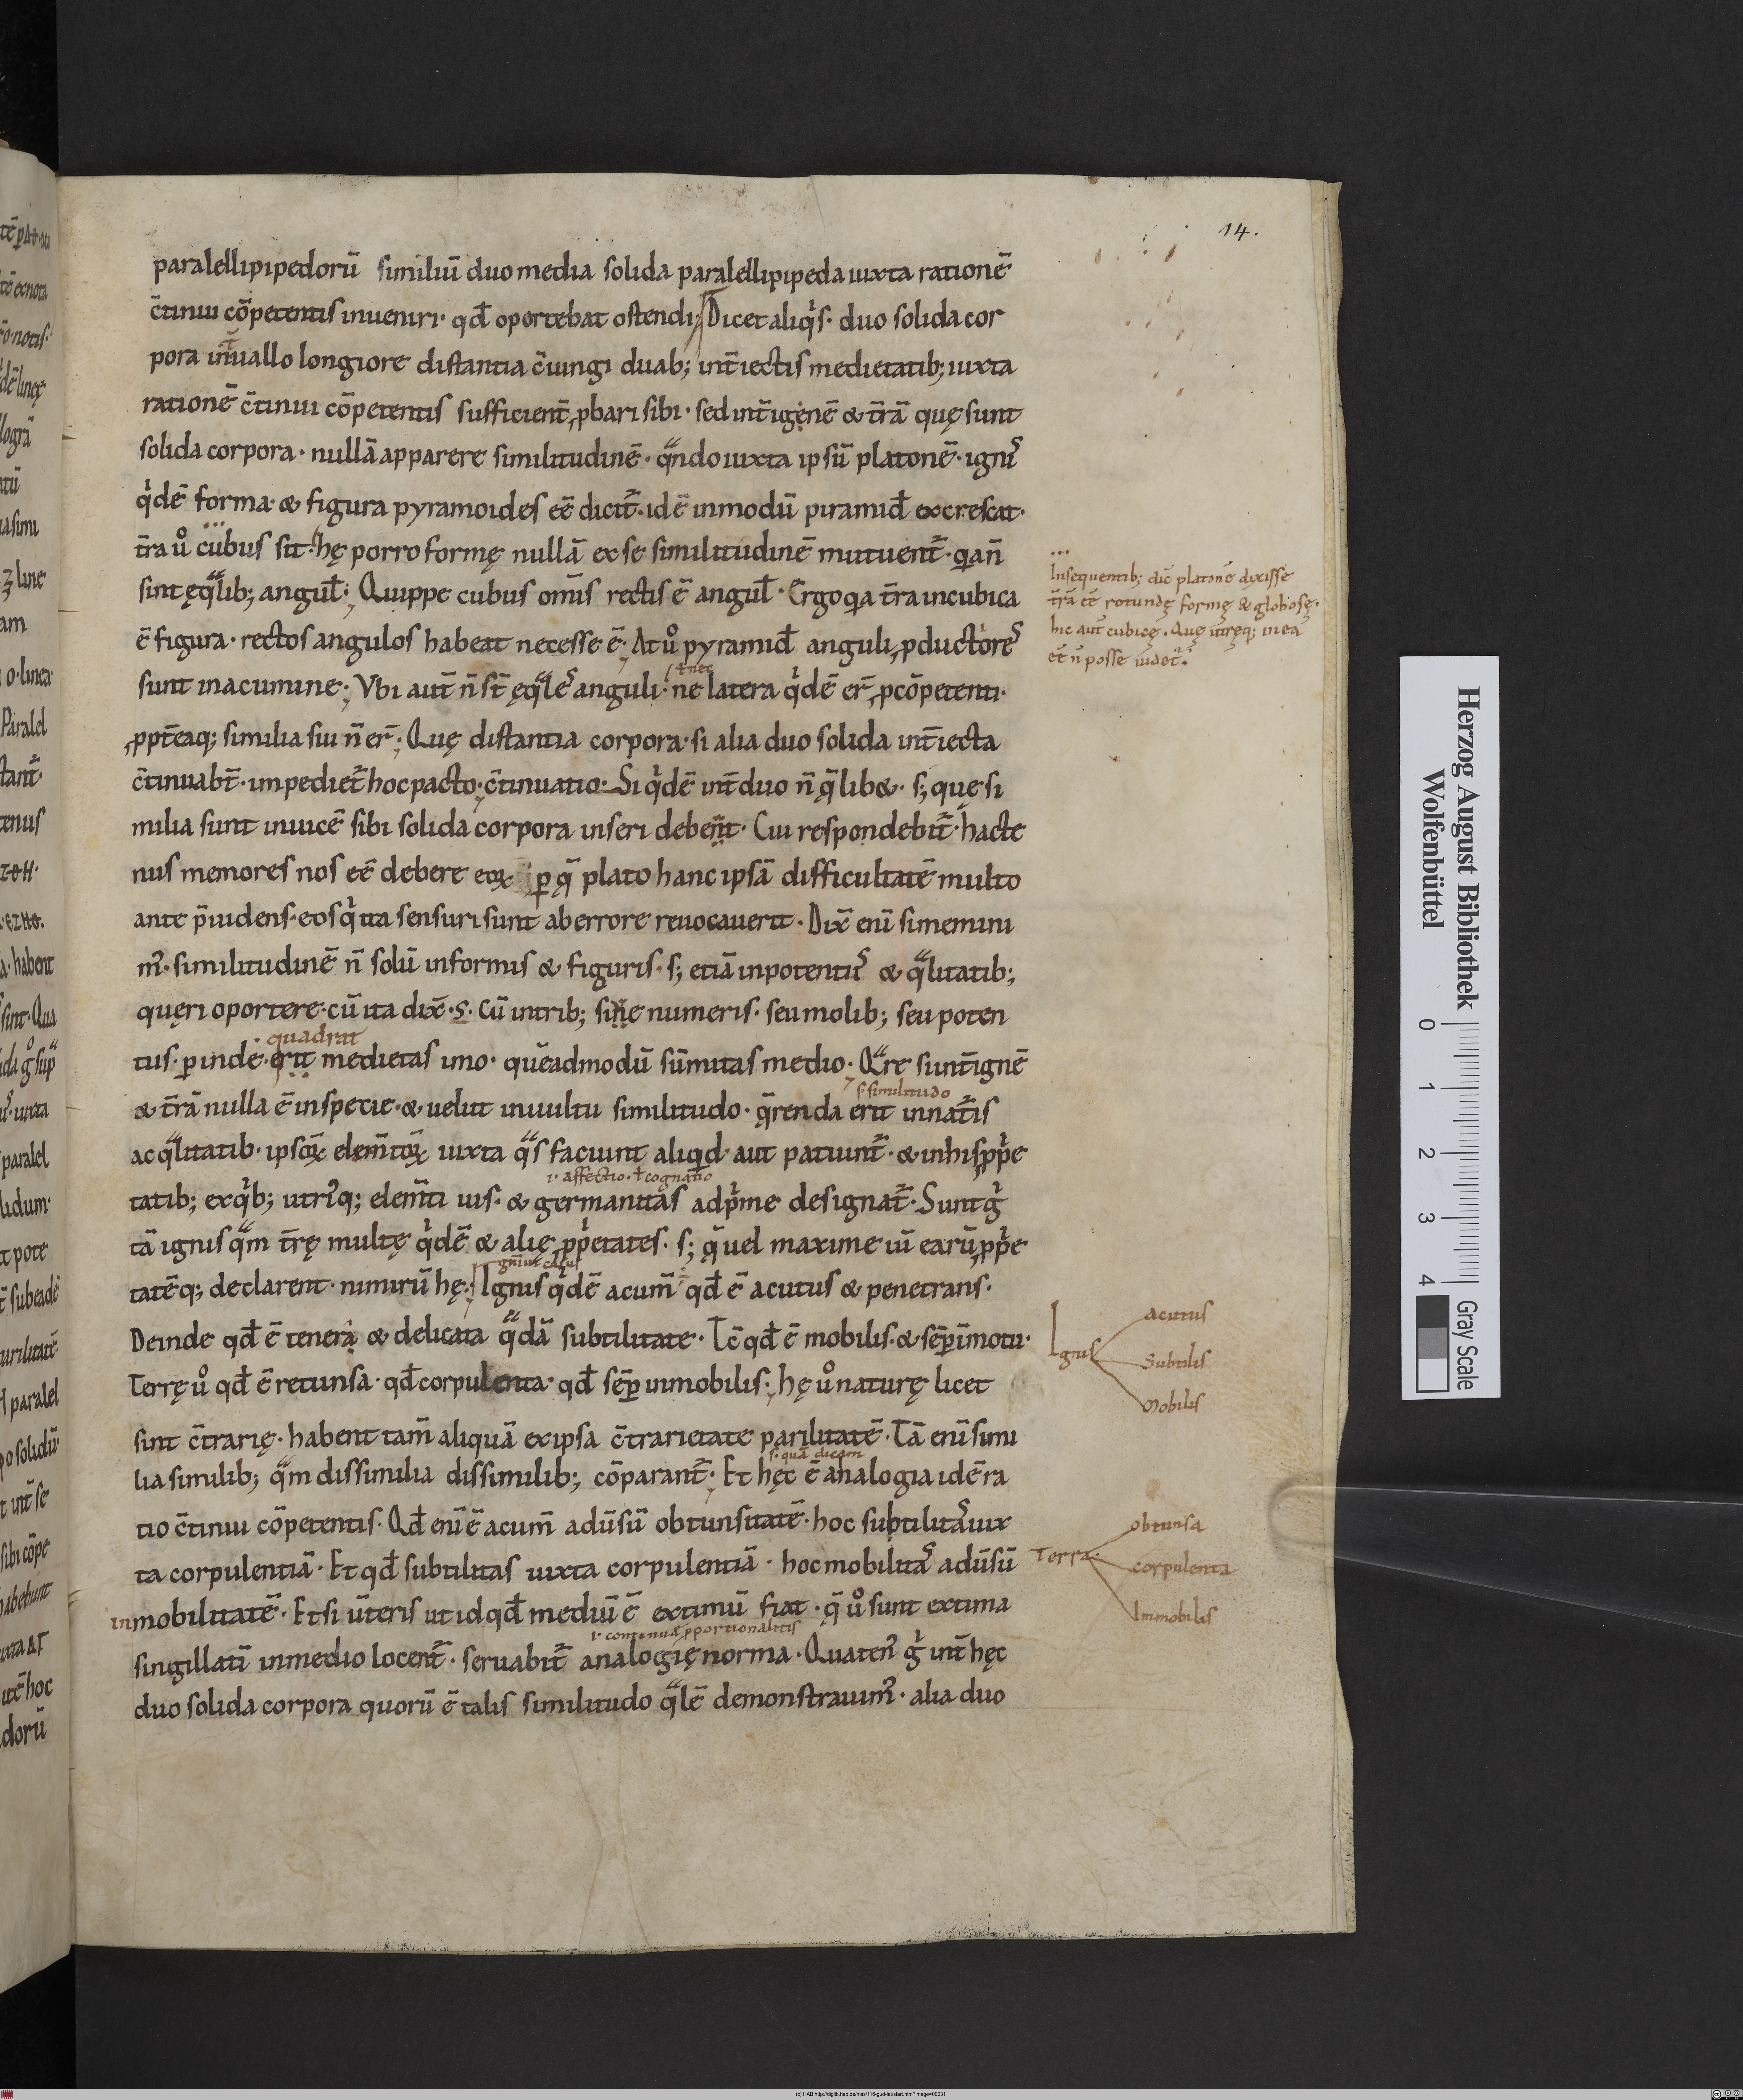 14.
paralellipipedorū similiū duo media solida paralellipipeda iuxta rationē
c̄tinui cōpetentis inueniri· qđ oportebat ostendi; Dicet aliqͥs· duo solida cor
pora int̄uallo longiore distantia c̄iungi duab; int̄iectis medietatib; iuxta
rationē c̄tinui cōpetentis sufficient̄ ꝓbari sibi· sed int̄ igenē & t̄rā quę sunt
solida corpora· nullā apparere similitudinē· qᷓndo iuxta ipsū platonē· igni᾽
qͥdē forma· & figura pyramoides eē dicit᷑· idē inmodū piramiđ excrescat·
t̄ra uͦ cubus sit· hę porro formę nullā ex se similitudinē mutuent᷑· quia n̄
sint ęqᷓlib; angul̄; Quippe cubus om̄is rectis ē angul̄· Ergo quia t̄ra incubica
ē figura· rectos angulos habeat necesse ē· At uͦ pyramiđ anguli ꝓductiore᾽
ł nec
sunt inacumine· Vbi aut̄ n̄ st̄ ęqᷓle᾽ anguli· ne latera qͥdē er̄ ꝓcōpetenti·
ꝓpt̄eaq; similia sui n̄ er̄· Quę distantia corpora· si alia duo solida int̄iecta
c̄tinuabt̄· impediet᷑ hoc pacto c̄tinuatio· Si qͥdē int̄ duo n̄ q̄libet· s; quę si
milia sunt inuicē sibi solida corpora inseri debent· Cui respondebit᷑· hacte
nus memores nos eē debere eoꝝ ꝑ q̄ plato hanc ipsā difficultatē multo
ante p̄uidens· eos qͥ ita sensuri sunt ab errore reuocauerit· Dix̄ enī si memini
m᾽· similitudinē n̄ solū informis & figuris· s; etiā inpotenti᾽ & qᷓlitatib;
quęri oportere· cū ita dix̄ ·s· Cū intrib; siue numeris· seu molib; seu poten
quadrat
tiis· ꝑinde· erit medietas imo· quēadmodū sūmitas medio· Qᷓre si int̄ ignē
s· similitudo
& t̄rā nulla ē inspecie· & uelut inuultu similitudo· q̄renda erit innat᷑is
ac qᷓlitatib· ipsoꝝ elem̄toꝝ iuxta qᷓs faciunt aliquid· aut patiunt᷑· & inhis ꝓpͥe
·i· affectio· ł cognatio
tatib; ex qͥb; utri᾽q; elem̄ti uis· & germanitas adpͥme designat᷑· Sunt gͥ
tā ignis qᷓm t̄rę multę qͥdē & alię ꝓpͥetates· s; q̄ uel maxime uī earū ꝓpͥe
gn̄iui casus
tatēq; declarent· nimirū hę; Ignis qͥdē acum̄ qđ ē acutus & penetrans·
Deinde qđ ē tenera & delicata qᷓdā subtilitate· Tc̄ qđ ē mobilis· & sēꝑ īmotu·
Terrę uͦ qđ ē retunsa· qđ corpulenta· qđ sēꝑ inmobilis; hę uͦ naturę licet
sint c̄trarię· habent tam̄ aliquā exipsa c̄trarietate parilitatē· Tā enī simi
s· quā dicam
lia similib; qᷓm dissimilia dissimilib; cōparant᷑; Et hęc ē analogia idē ra
tio c̄tinui cōpetentis· Qđ enī ē acum̄ adūsū obtunsitatē· hoc subtilita᾽ iux
ta corpulentiā· Et qđ subtilitas iuxta corpulentiā· hoc mobilita᾽ adūsū
inmobilitatē· Et si ūteris ut id qđ mediū ē extimū fiat· q̄ uͦ sunt extima
·i· continuę ꝓportionalitis
singillatī inmedio locent᷑· seruabit᷑ analogię norma· Quaten᾽ gͥ int̄ hęc
duo solida corpora quorū ē talis similitudo qᷓlē demonstrauim᾽· alia duo
Insequentib; dic̄ platonē dixisse
t̄rā eē rotundę formę & globosę·
hic aut̄ cubicę· Quę utręq; inea
eē n̄ posse uidet᷑·
Ignis
acutus
Subtilis
Mobilis
Terra·
obtunsa
corpulenta
Immobilis
Herzog August Bibliothek
Wolfenbüttel
0 1 2 3 4
Gray Scale
(c) HAB http://diglib.hab.de/mss/116-gud-lat/start.htm?image=00031